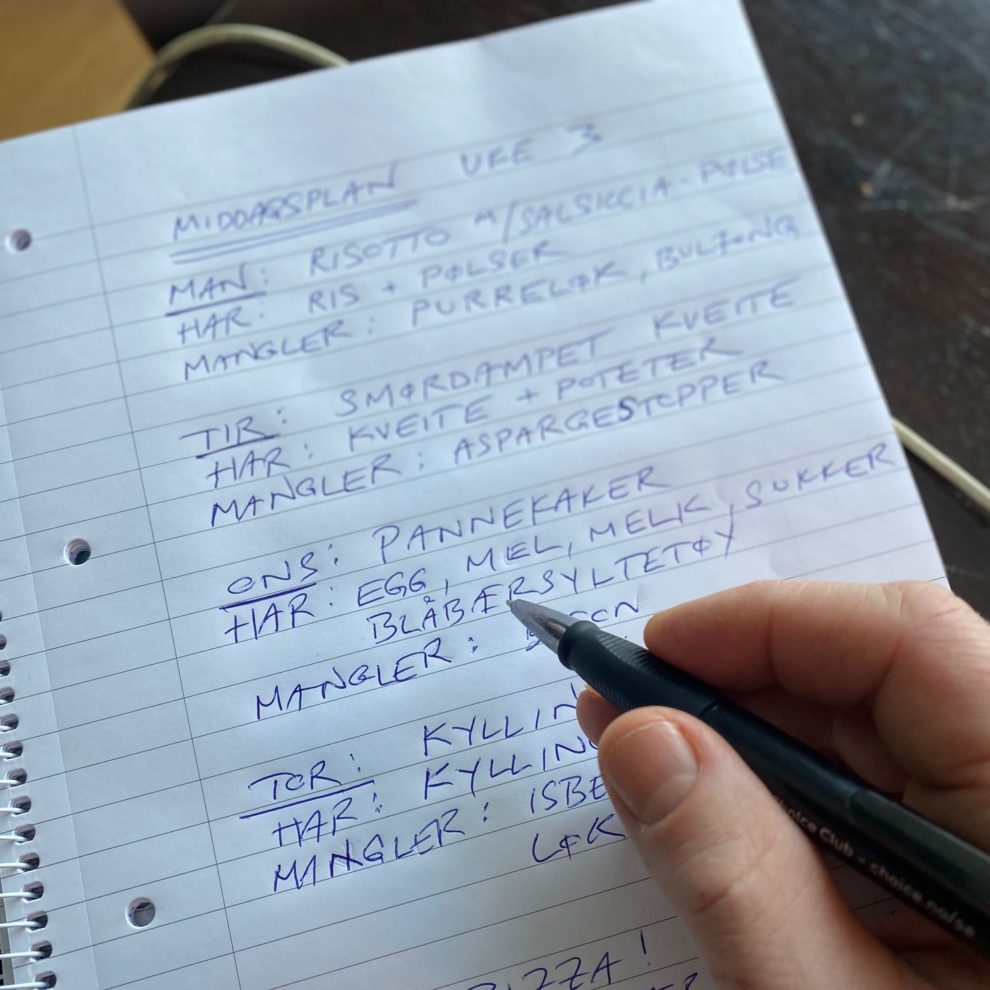 MIDDAGSPLAN UKE 3
MAN: RISOTTO M/SALSICCIA-PØLSE
HAR: RIS + PØLSER
MANGLER: PURRELØK, BULJONG
TIR: SMØRDAMPET KVEITE
HAR: KVEITE + POTETER
MANGLER: ASPARGESTOPPER
ONS: PANNEKAKER
HAR: EGG, MEL, MELK, SUKKER
BLÅBÆRSYLTETØY
MANGLER:
TOR: KYLLIN
HAR: KYLLING
MANGLER: ISBE
LØK
PIZZA!
choice Club - choice.no/se